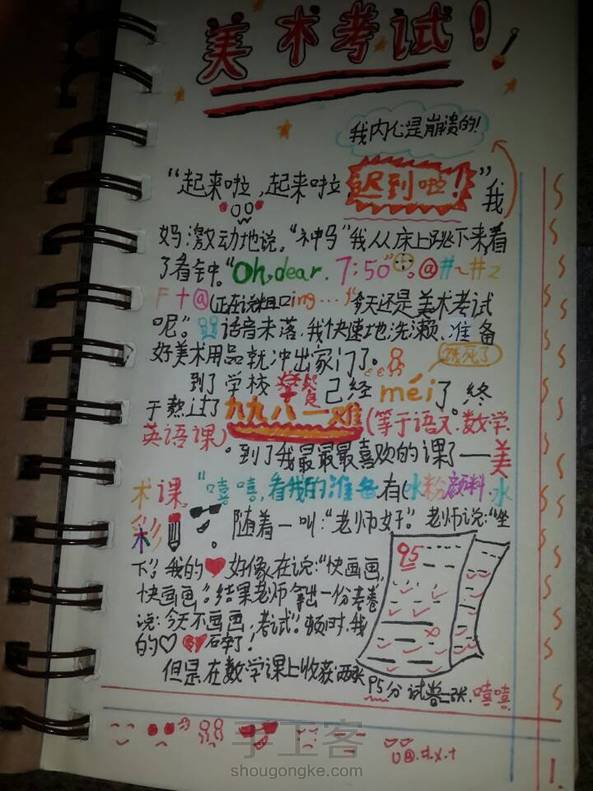 美术考试！
我内心是崩溃的！
“起来啦，起来啦 迟到啦！”我
妈激动地说。“神马”我从床上跳下来看
了看钟。“Oh, dear. 7:50”。@#~#z
F+@(正在说粗口ing…)“今天还是美术考试
呢”。话音未落，我快速地洗漱、准备
好美术用品就冲出家门了。
饿死了
到了学校 早餐 已经 méi了。终
于熬过了九九八一难(等于语文.数学.
英语课)
。到了我最最最喜欢的课了——美
术课“嘻嘻，看我的准备有(水粉颜料、水
彩
。随着一叫：“老师好”。老师说：“坐
下”！我的 好像在说：“快画画，
快画画”。结果老师拿出一份考卷
说：今天不画画，考试”。顿时，我
的 碎了！
但是在数学课上收获两张
95分试卷二张.嘻嘻.
95
手工客
shougongke.com
1.